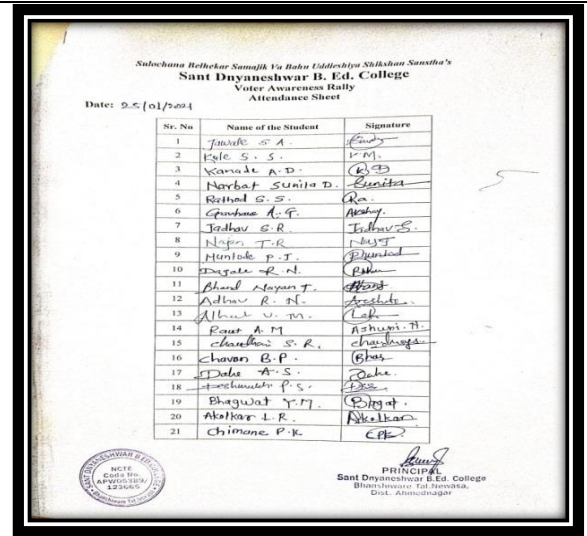 Sulochana Belhekar Samajik Va Bahu Uddleshiya Shikshan Sanstha's
Sant Dnyaneshwar B. Ed. College
Voter Awareness Rally
Attendance Sheet
Date: 25/01/2021
Sr. No Name of the Student Signature
1 Jawale S A.
2 Kale S. S. V M.
3 Kanade A. D.
4 Narbat Sunita D. Sunita
5 Rathod S. S. Ra.
6 A. G. Akshay.
7 Jadhav S. R. Jadhav S.
8 T. R
9 Huntode P. J.
10 R. N.
11 Bhand Nayan T. Bhand
12 Adhav R. N.
13 Alhat V. M.
14 Raut A. M Ashwini. M.
15 chaudhari S. R.
16 Chavan B. P. Bhas
17 Dahe A. S. Dahe.
18 Deshmukh P. S.
19 Bhagwat Y. M. Bhagat.
20 Akolkar L. R. Akolkar
21 Chimane P. K CPK
SANT DNYANESHWAR B.ED. COLLEGE
NCTE
Code No.
APW05389/
123665
PRINCIPAL
Sant Dnyaneshwar B.Ed. College
Bhanshiware Tal.Newasa,
Dist. Ahmednagar